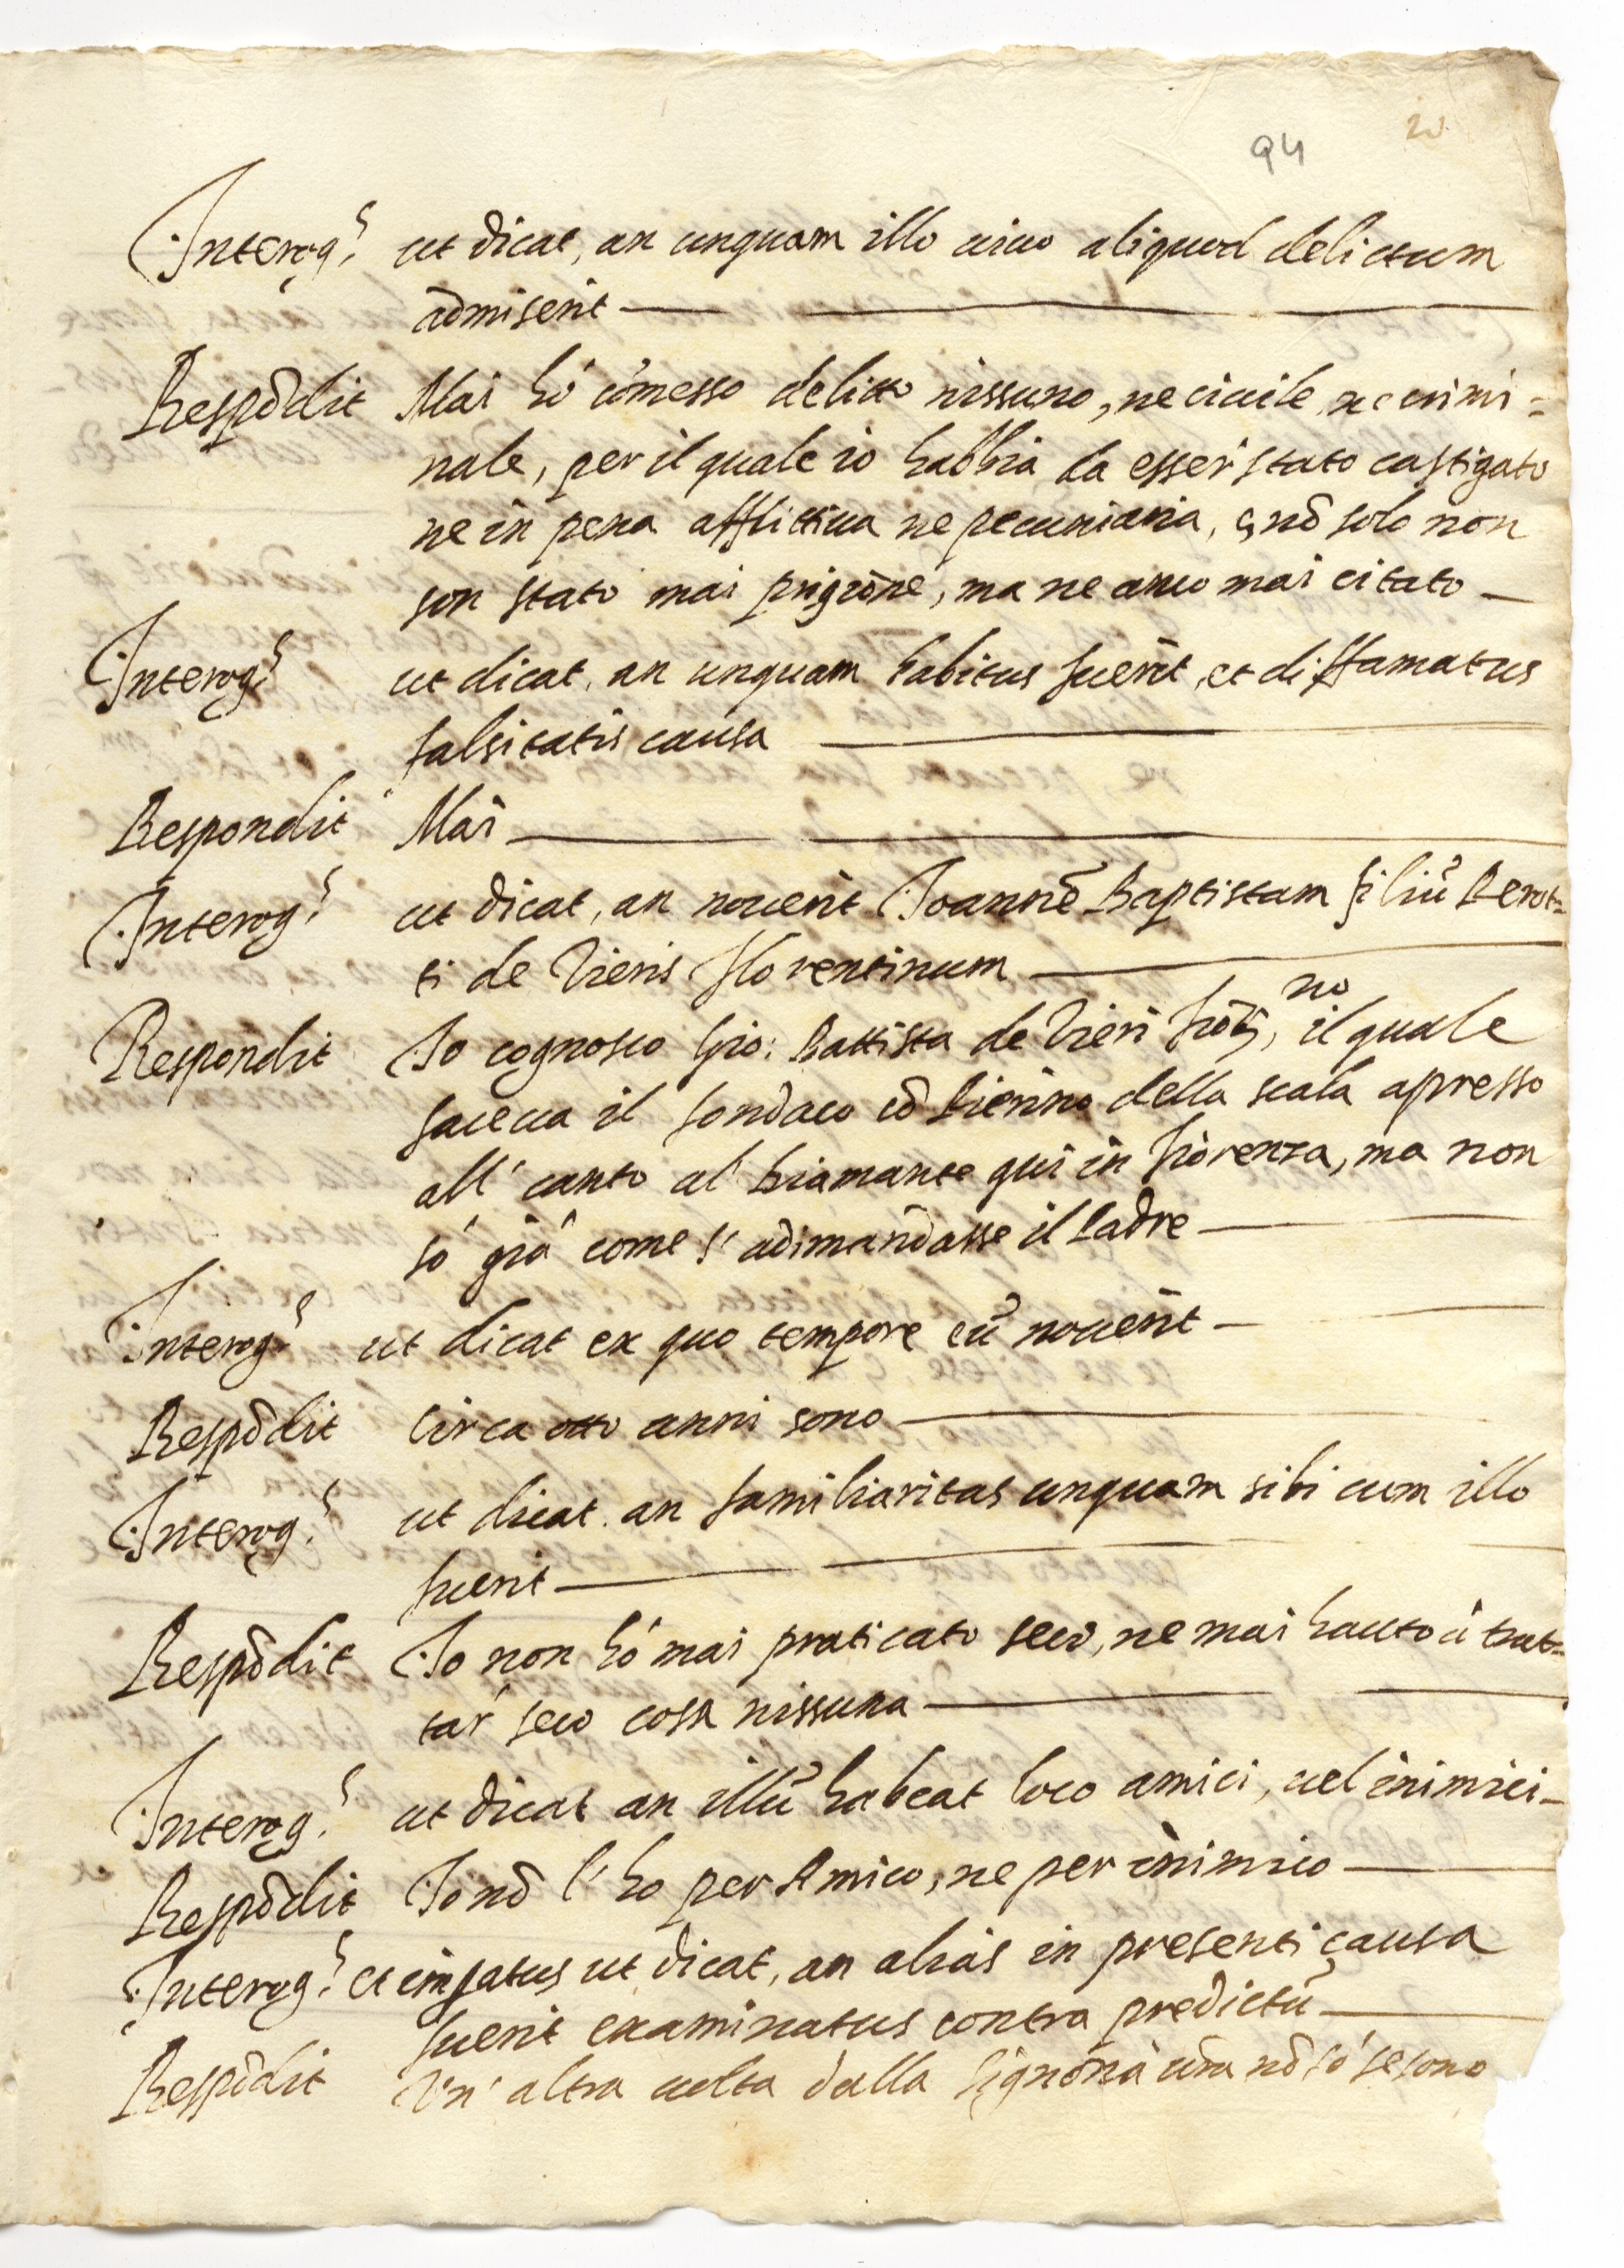 94
20
Interog.s ut dicat, an unquam illo uiuo aliquod delictum
admiserit
Respõdit Mai hó cõmesso delitto nissuno, ne ciuile ne crimi=
nale, per il quale io habbia da esser stato castigato
ne in pena afflittiua ne pecuniaria, & nõ solo non
son stato mai prigione, ma ne anco mai citato
Interog.s ut dicat, an unquam habitus fuerit, et diffamatus
falsitatis causa
Respondit Mai
Interog.s ut dicat, an nouerit Joannẽ Baptistam filiũ Perot=
ti de Vieris florentinum
Respondit Io cognosco Gio: Battista de Vieri fior.no, il quale
faceua il fondaco cõ Pierino della scala apresso
all' canto al' Diamante qui in Fiorenza, ma non
só giá come s' adimandasse il Padre
Interog.s ut dicat ex quo tempore eũ nouerit
Respõdit Circa otto anni sono
Interog.s ut dicat. an familiaritas unquam sibi cum illo
fuerit
Respõdit Io non hó mai praticato seco, ne mai hauto á trat=
tar' seco cosa nissuna
Interog.s ut dicat an illũ habeat loco amici, uel inimici
Respõdit Io nõ l' ho per Amico, ne per inimico
Interog.s et ut dicat, an aliás in presenti causa
fuerit examinatus contra predictũ
Respõdit Vn' altra uolta dalla Signoria ura nõ só se sono